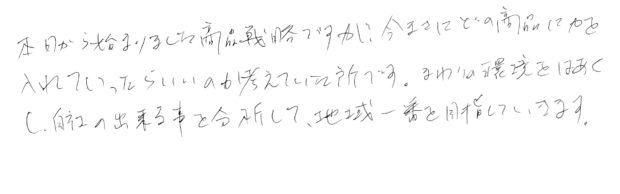 本日から始まりました商品戦略ですが、今まさにどの商品に力を
入れていったらいいのか考えていた所です。まわりの環境をはあく
し、自社の出来る事を分析して、地域一番を目指していきます。